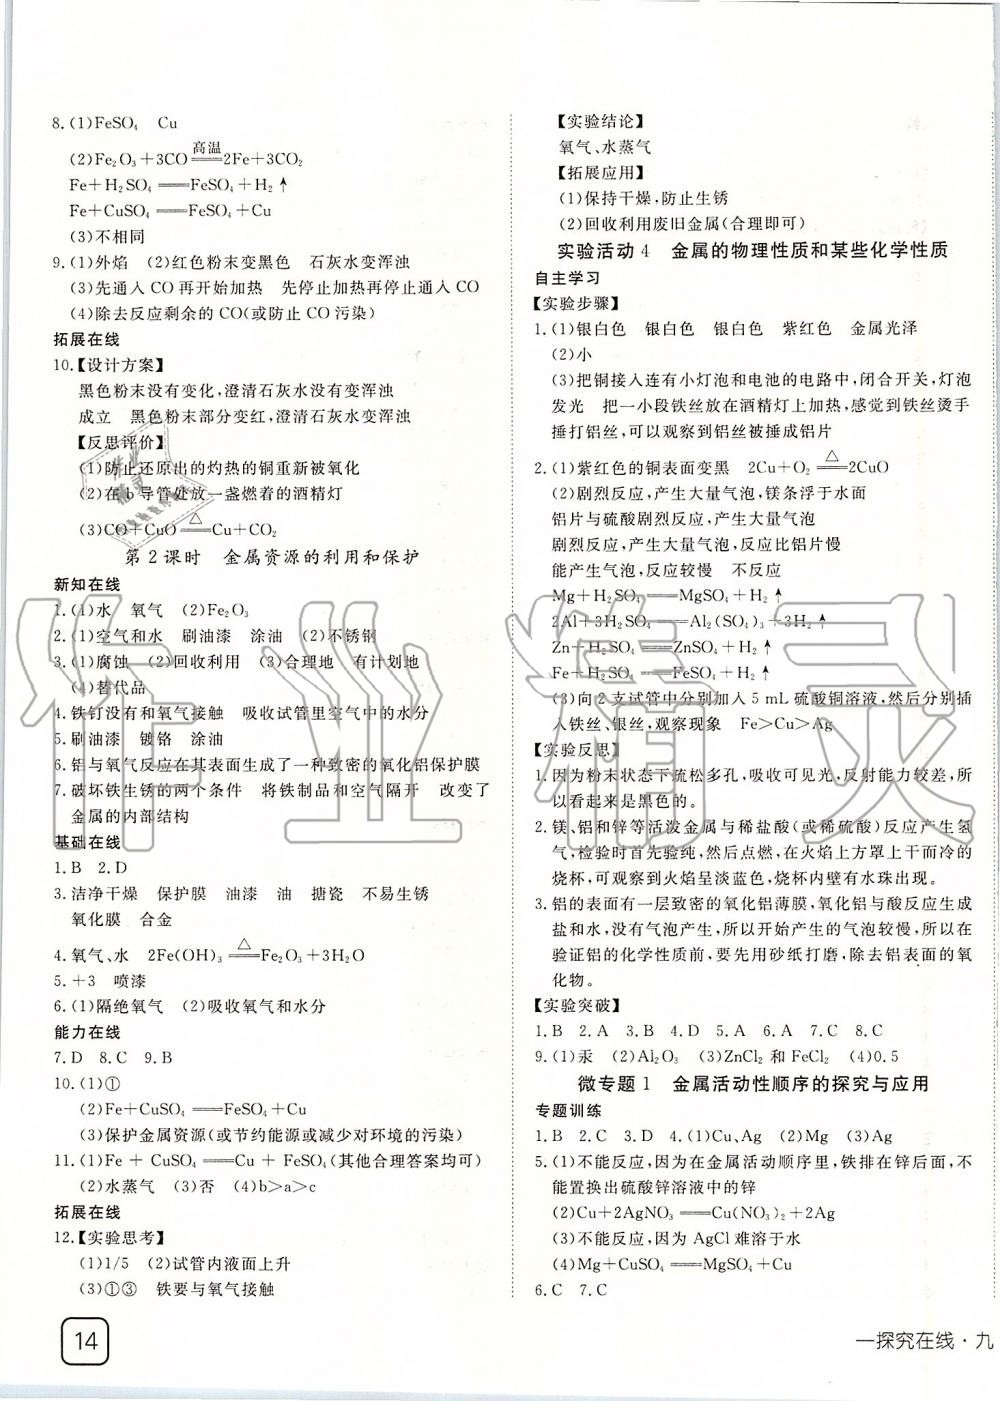 8.(1)FeSO₄ Cu
(2)Fe₂O₃+3CO══高温══2Fe+3CO₂
Fe+H₂SO₄══FeSO₄+H₂↑
Fe+CuSO₄══FeSO₄+Cu
(3)不相同
9.(1)外焰 (2)红色粉末变黑色 石灰水变浑浊
(3)先通入 CO 再开始加热 先停止加热再停止通入 CO
(4)除去反应剩余的 CO(或防止 CO 污染)
拓展在线
10.【设计方案】
黑色粉末没有变化,澄清石灰水没有变浑浊
成立 黑色粉末部分变红,澄清石灰水变浑浊
【反思评价】
(1)防止还原出的灼热的铜重新被氧化
(2)在 b 导管处放一盏燃着的酒精灯
(3)CO+CuO══△══Cu+CO₂
第 2 课时 金属资源的利用和保护
新知在线
1.(1)水 氧气 (2)Fe₂O₃
2.(1)空气和水 刷油漆 涂油 (2)不锈钢
3.(1)腐蚀 (2)回收利用 (3)合理地 有计划地
(4)替代品
4.铁钉没有和氧气接触 吸收试管里空气中的水分
5.刷油漆 镀铬 涂油
6.铝与氧气反应在其表面生成了一种致密的氧化铝保护膜
7.破坏铁生锈的两个条件 将铁制品和空气隔开 改变了
金属的内部结构
基础在线
1.B 2.D
3.洁净干燥 保护膜 油漆 油 搪瓷 不易生锈
氧化膜 合金
4.氧气、水 2Fe(OH)₃══△══Fe₂O₃+3H₂O
5.+3 喷漆
6.(1)隔绝氧气 (2)吸收氧气和水分
能力在线
7.D 8.C 9.B
10.(1)①
(2)Fe+CuSO₄══FeSO₄+Cu
(3)保护金属资源(或节约能源或减少对环境的污染)
11.(1)Fe + CuSO₄══Cu + FeSO₄(其他合理答案均可)
(2)水蒸气 (3)否 (4)b>a>c
拓展在线
12.【实验思考】
(1)1/5 (2)试管内液面上升
(3)①③ 铁要与氧气接触
14
【实验结论】
氧气、水蒸气
【拓展应用】
(1)保持干燥,防止生锈
(2)回收利用废旧金属(合理即可)
实验活动 4 金属的物理性质和某些化学性质
自主学习
【实验步骤】
1.(1)银白色 银白色 银白色 紫红色 金属光泽
(2)小
(3)把铜接入连有小灯泡和电池的电路中,闭合开关,灯泡
发光 把一小段铁丝放在酒精灯上加热,感觉到铁丝烫手
捶打铝丝,可以观察到铝丝被捶成铝片
2.(1)紫红色的铜表面变黑 2Cu+O₂══△══2CuO
(2)剧烈反应,产生大量气泡,镁条浮于水面
铝片与硫酸剧烈反应,产生大量气泡
剧烈反应,产生大量气泡,反应比铝片慢
能产生气泡,反应较慢 不反应
Mg+H₂SO₄══MgSO₄+H₂↑
2Al+3H₂SO₄══Al₂(SO₄)₃+3H₂↑
Zn+H₂SO₄══ZnSO₄+H₂↑
Fe+H₂SO₄══FeSO₄+H₂↑
(3)向 2 支试管中分别加入 5 mL 硫酸铜溶液,然后分别插
入铁丝、银丝,观察现象 Fe>Cu>Ag
【实验反思】
1.因为粉末状态下疏松多孔,吸收可见光,反射能力较差,所
以看起来是黑色的。
2.镁、铝和锌等活泼金属与稀盐酸(或稀硫酸)反应产生氢
气,检验时首先验纯,然后点燃,在火焰上方罩上干而冷的
烧杯,可观察到火焰呈淡蓝色,烧杯内壁有水珠出现。
3.铝的表面有一层致密的氧化铝薄膜,氧化铝与酸反应生成
盐和水,没有气泡产生,所以开始产生的气泡较慢,所以在
验证铝的化学性质前,要先用砂纸打磨,除去铝表面的氧
化物。
【实验突破】
1.B 2.A 3.B 4.D 5.A 6.A 7.C 8.C
9.(1)汞 (2)Al₂O₃ (3)ZnCl₂ 和 FeCl₂ (4)0.5
微专题 1 金属活动性顺序的探究与应用
专题训练
1.B 2.C 3.D 4.(1)Cu、Ag (2)Mg (3)Ag
5.(1)不能反应,因为在金属活动顺序里,铁排在锌后面,不
能置换出硫酸锌溶液中的锌
(2)Cu+2AgNO₃══Cu(NO₃)₂+2Ag
(3)不能反应,因为 AgCl 难溶于水
(4)Mg+CuSO₄══MgSO₄+Cu
6.C 7.C
一探究在线·九
作业精灵